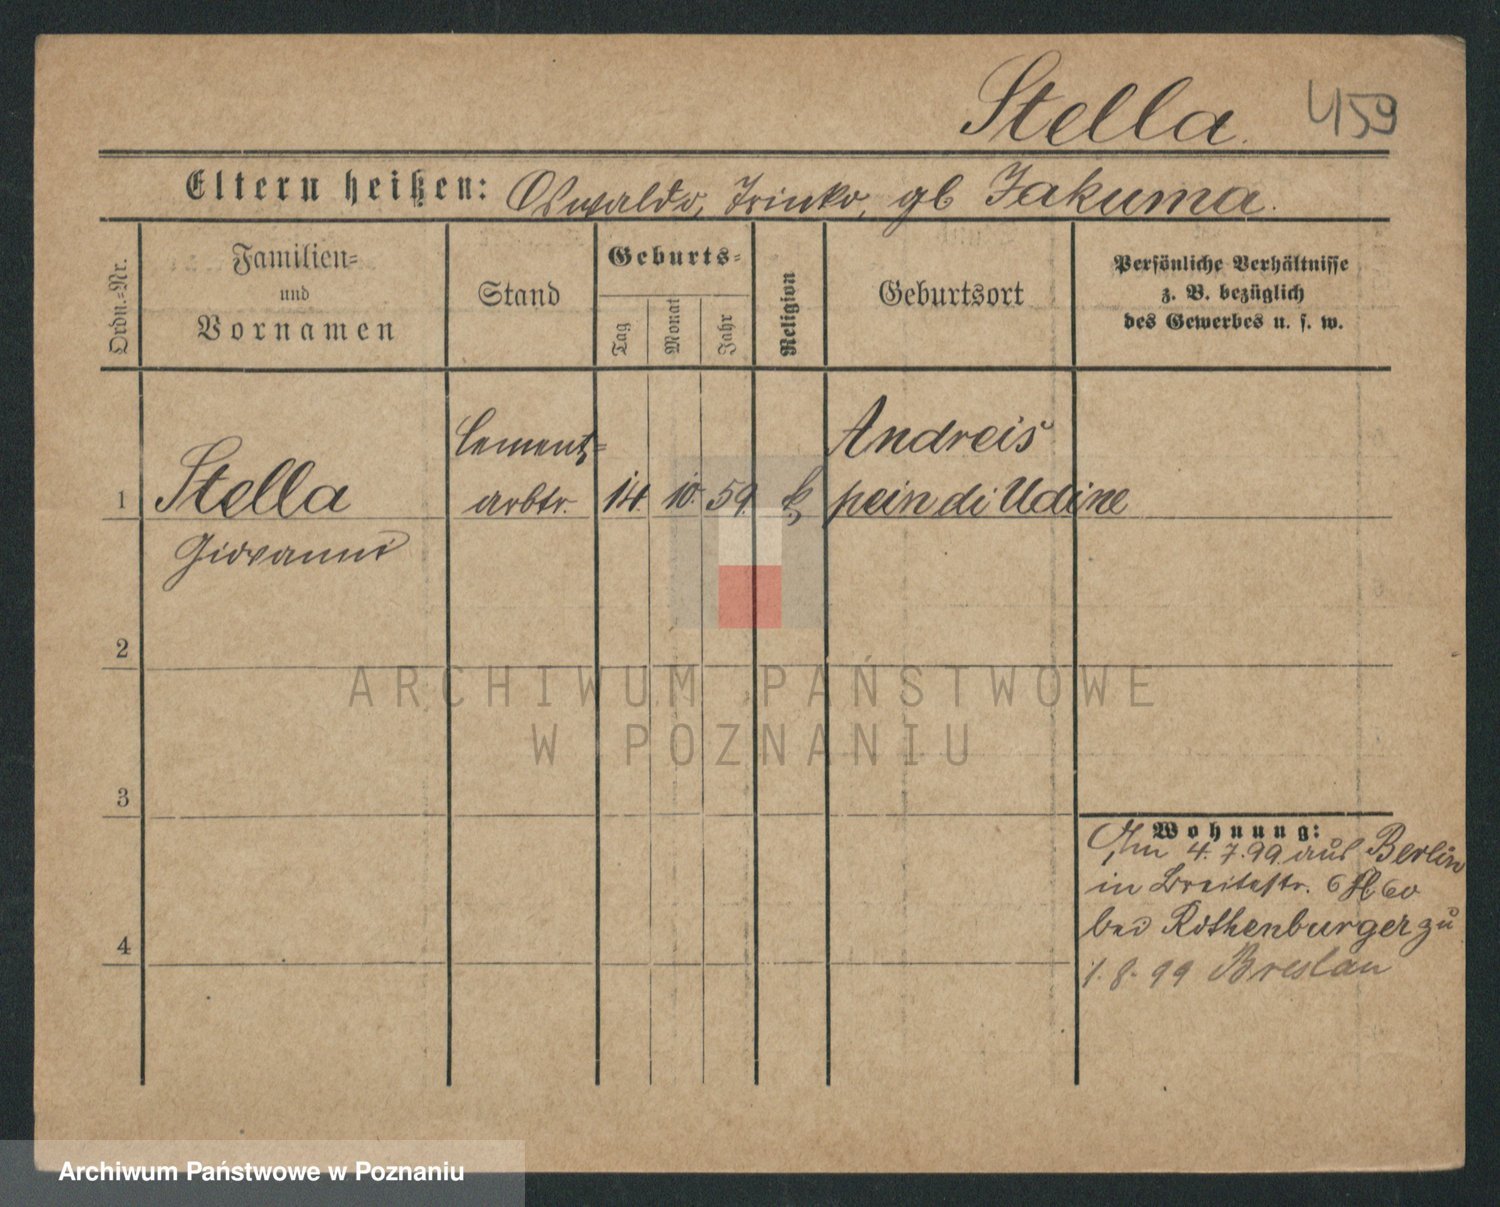 Stella. 459
Eltern heißen: Oswaldo, Trinko, gb Jakuma.
Ordn.=Nr.
Familien=
und
Vornamen
Stand
Geburts=
Tag
Monat
Jahr
Religion
Geburtsort
Persönliche Verhältnisse
z. B. bezüglich
des Gewerbes u. s. w.
Cement= Andreis
1 Stella arbtr. 14. 10. 59. k di Udine
Giovanni
2
ARCHIWUM PAŃSTWOWE
W POZNANIU
3
4
Wohnung:
Am 4. 7. 99. aus Berlin
in Breitestr. 6
bei Rothenburger zu
1. 8. 99 Breslau
Archiwum Państwowe w Poznaniu